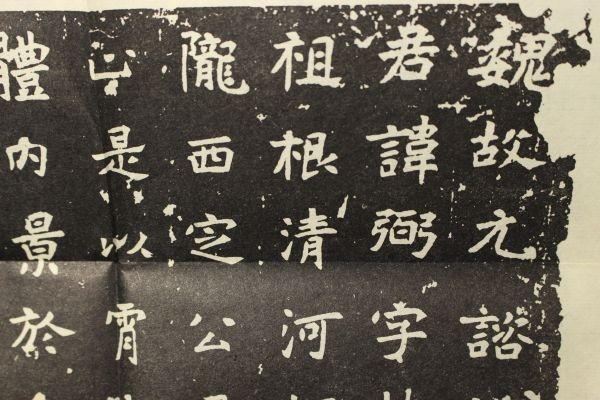 魏故元諮
君諱弼字
祖根清河
隴西定公
是以霄
體內景於